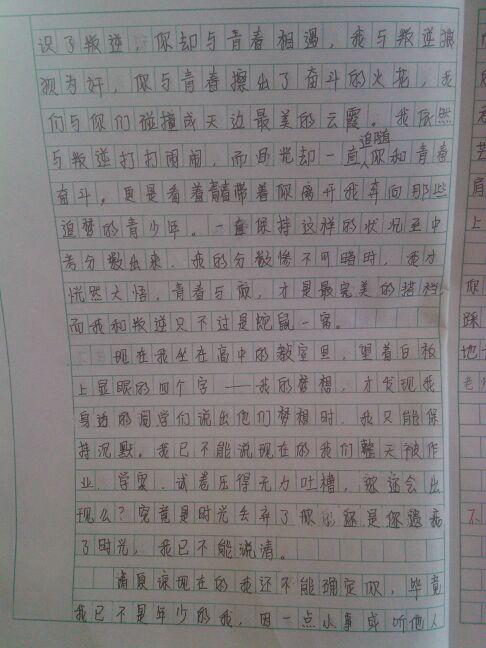 识了叛逆，你却与青春相遇，我与叛逆狼
狈为奸，你与青春擦出了奋斗的火花，我
们与你们碰撞成天边最美的云霞。我依然
与叛逆打打闹闹，而目光却一直追随你和青春
奋斗。更是看着青春带着你离开我奔向那些
追梦的青少年。一直保持这样的状况至中
考分数出来，我的分数惨不可睹时，我才
恍然大悟，青春与你，才是最完美的搭档
而我和叛逆只不过是蛇鼠一窝。
现在我坐在高中的教室里，望着白板
上显眼的四个字——我的梦想，才发现我
身边的同学们说出他们梦想时，我只能保
持沉默。我已不能说现在的我们整天被作
业、学案、试卷压得无力吐槽，你还会出
现么？究竟是时光丢弃了你还是你遗弃
了时光，我已不能说清。
请原谅现在的我还不能确定你，毕竟
我已不是年少的我，因一点小事或听他人